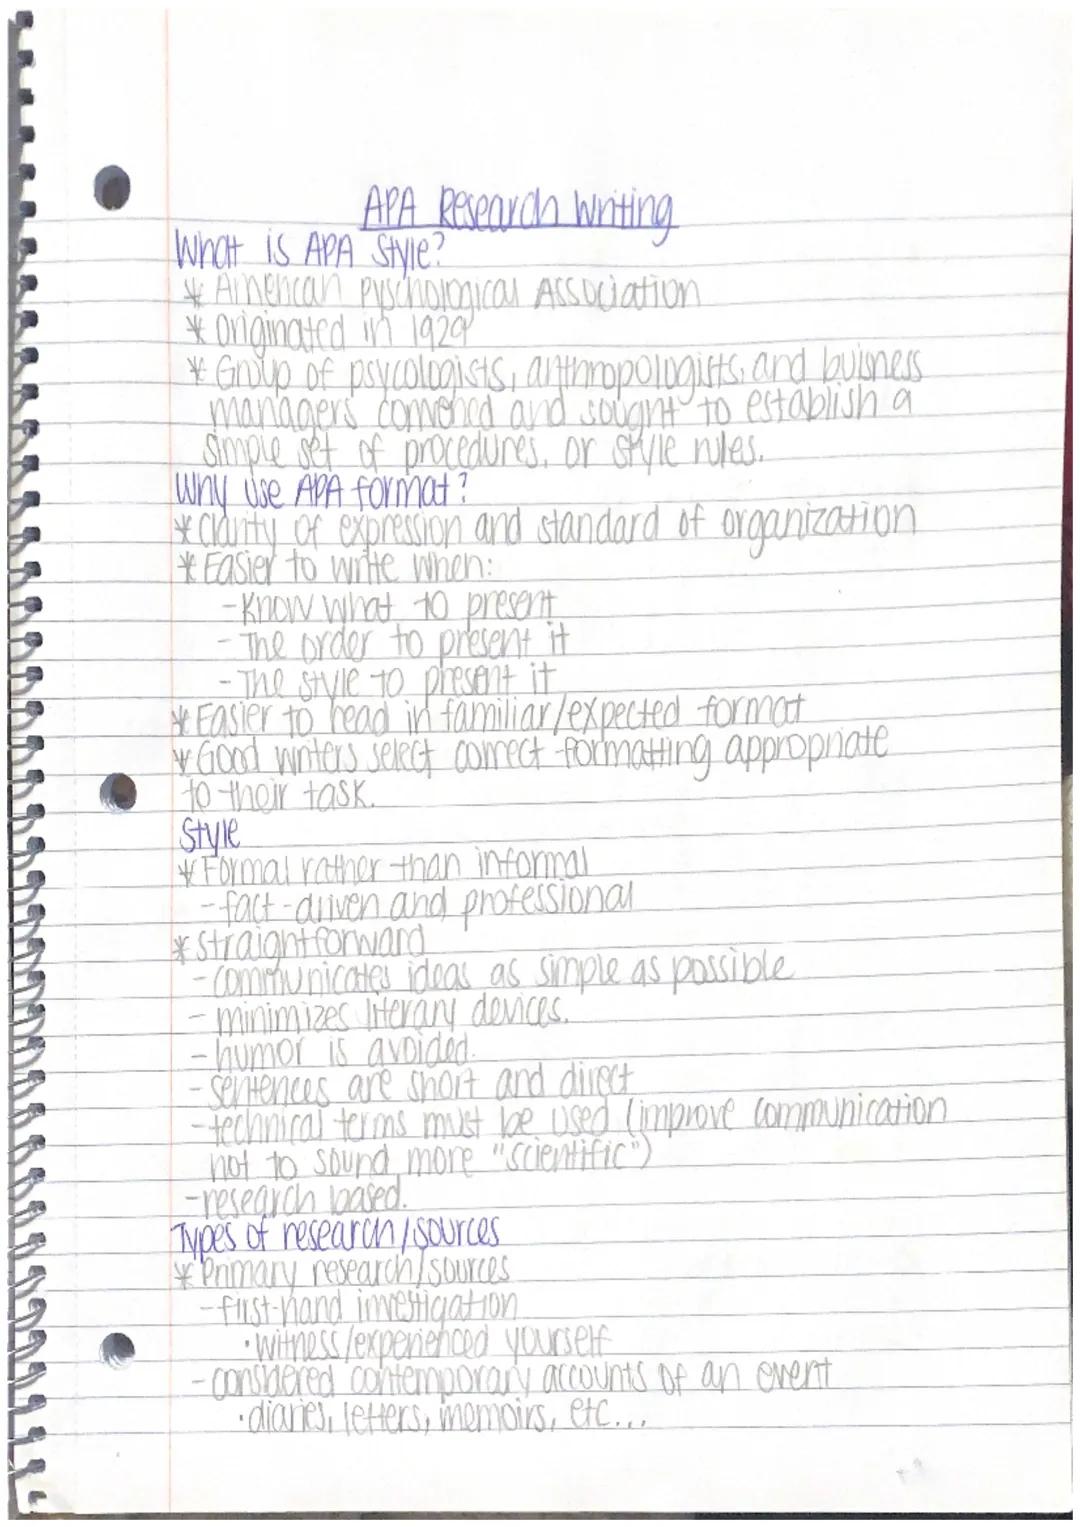 APA Research Writing
What is APA Style?
* American Pyschological Association
* Originated in 1929
* Group of psycologists, anthropologists, and buisness
managers convened and sought to establish a
simple set of procedures, or style rules.
Why use APA format?
* Clarity of expression and standard of organization
* Easier to write when:
- Know what to present
- The order to present it
- The style to present it
* Easier to read in familiar/expected format
* Good writers select correct formatting appropriate
to their task.
Style
* Formal rather than informal
- fact-driven and professional
* straightforward
- communicates ideas as simple as possible
- minimizes literary devices.
- humor is avoided.
- sentences are short and direct
- technical terms must be used (improve communication
not to sound more "scientific")
- research based.
Types of research/sources
* Primary research/sources
- first-hand investigation
• witness/experienced yourself
- considered contemporary accounts of an event
• diaries, letters, memoirs, etc...